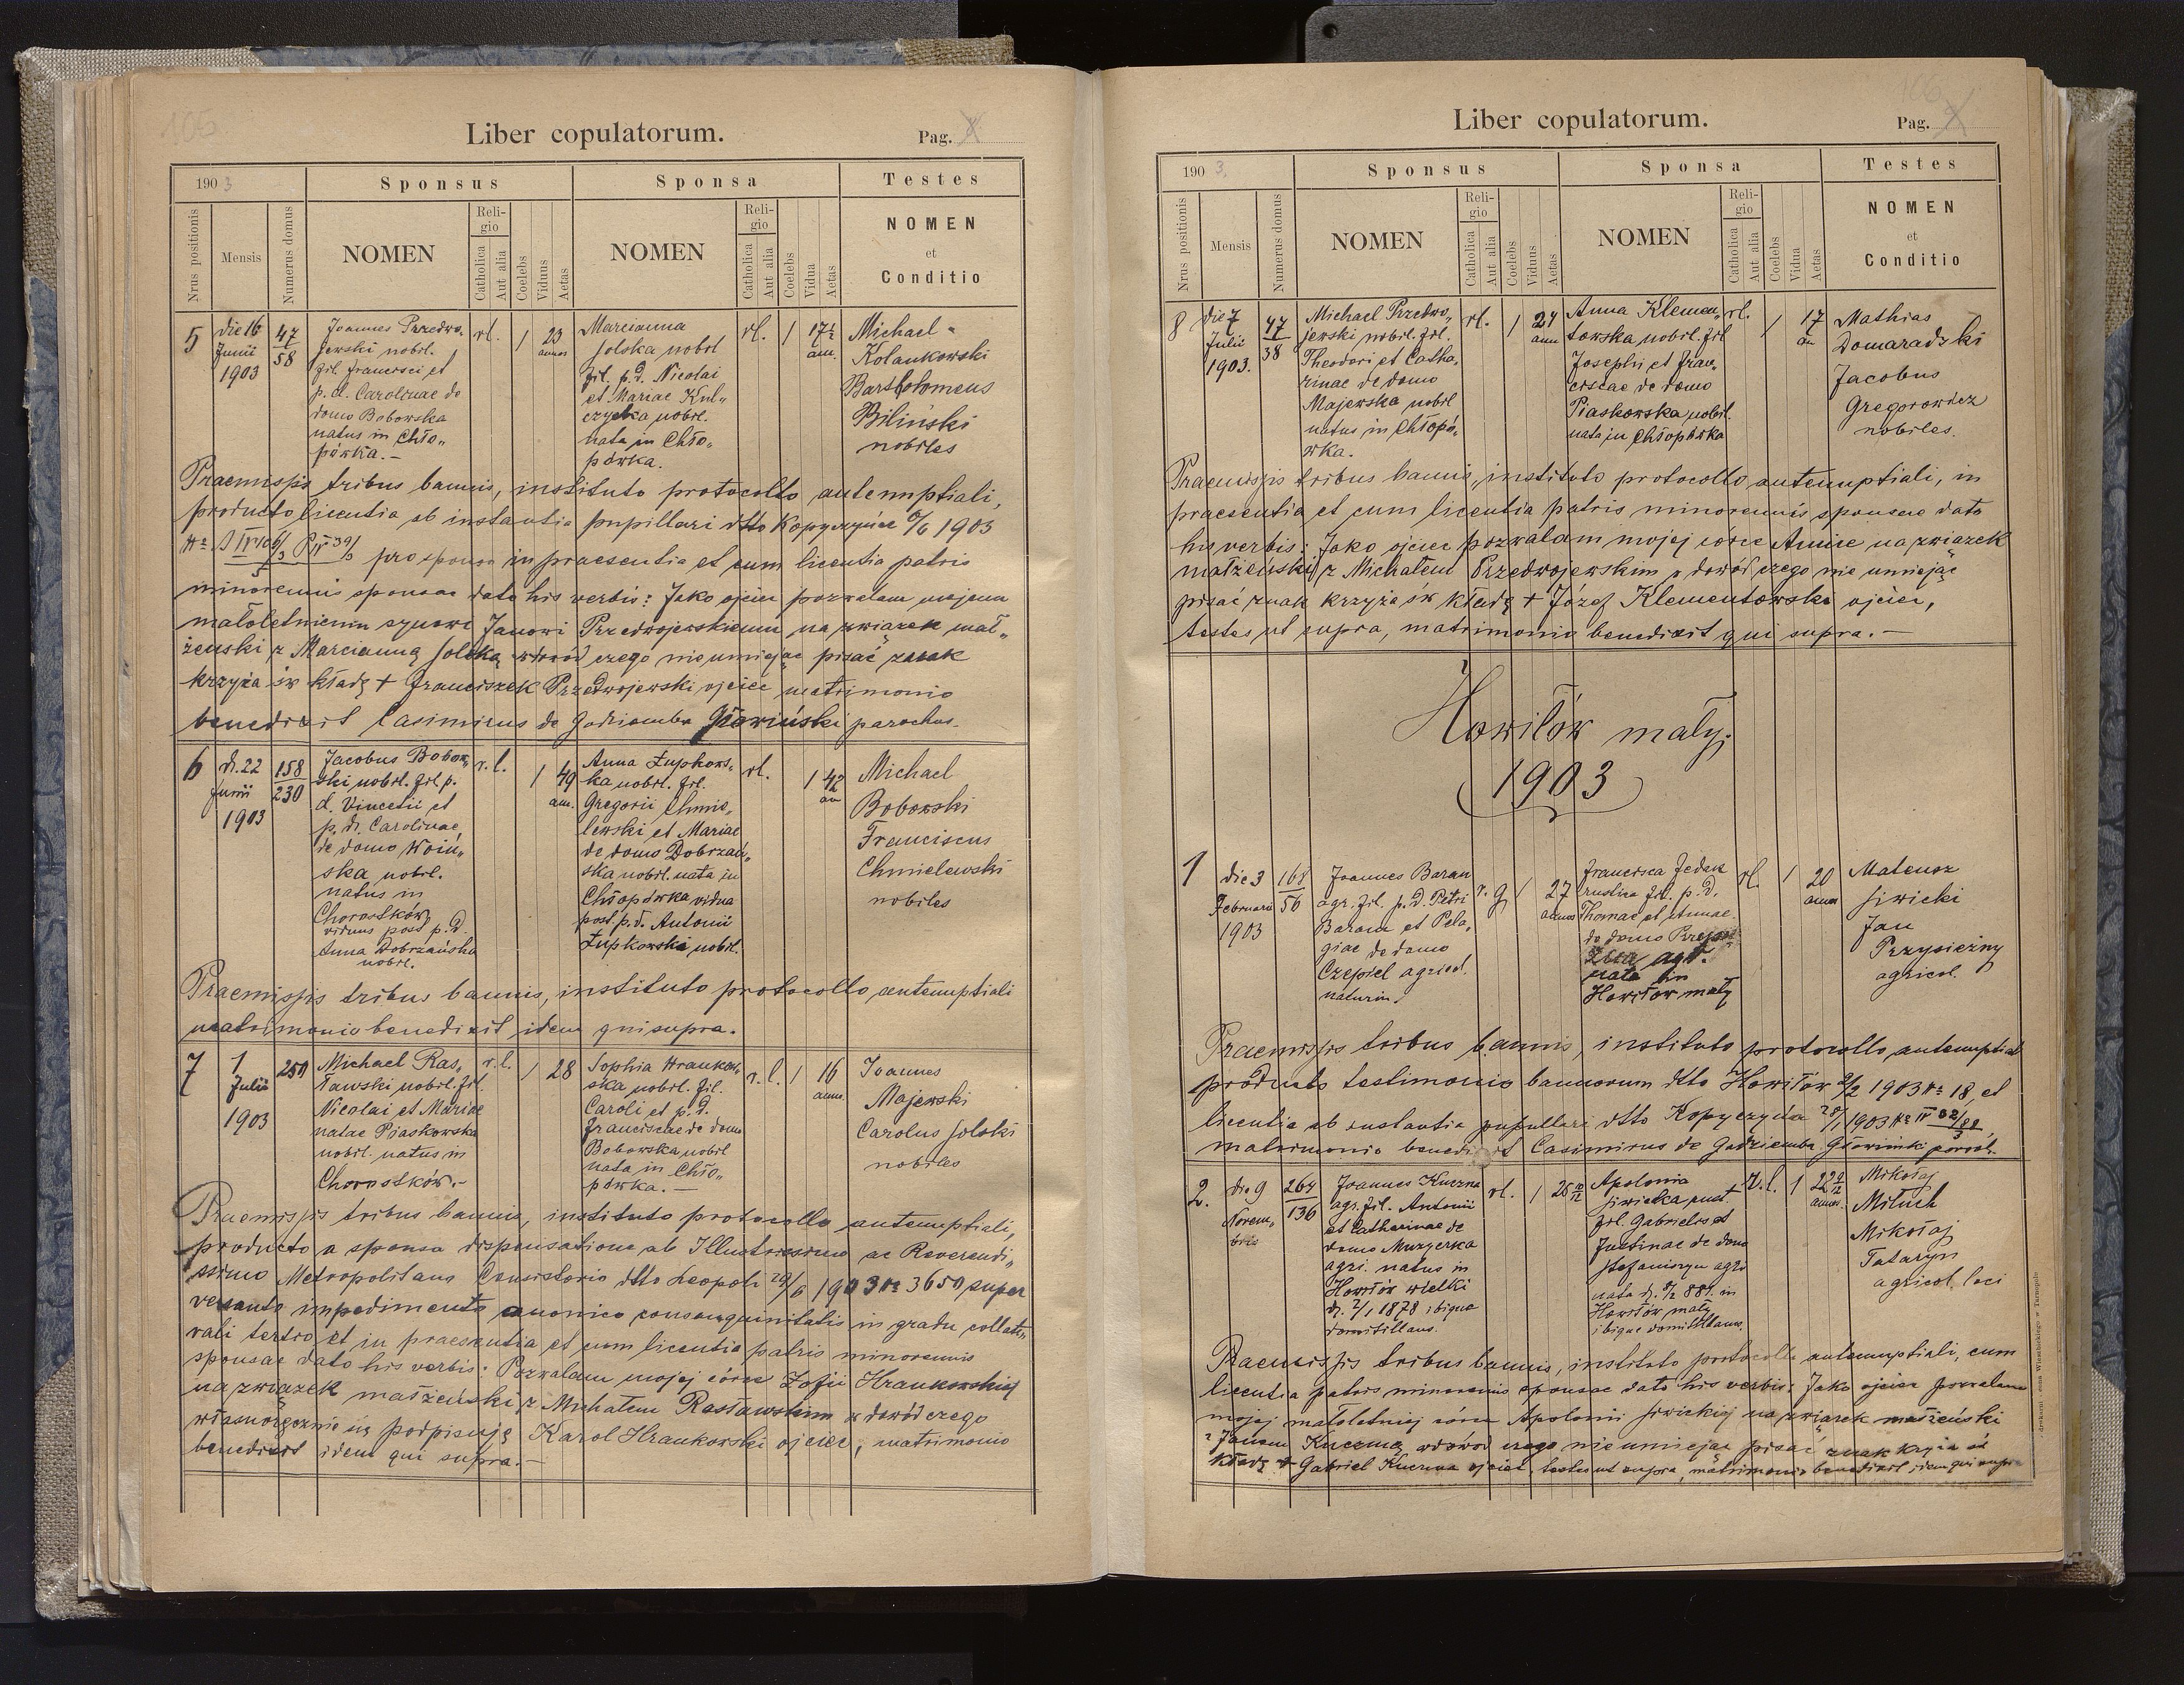 105
Liber copulatorum.
Pag.
1903
Sponsus
Sponsa
Testes
Nrus positionis
Mensis
Numerus domus
NOMEN
Religio
Catholica
Aut alia
Coelebs
Viduus
Aetas
NOMEN
Religio
Catholica
Aut alia
Coelebs
Vidua
Aetas
NOMEN
et
Conditio
5
die 16
Junii
1903
47
58
Joannes Przedwo„
jewski nobil.
fil. Francisci et
p. d. Carolinae de
domo Bobowska
natus in Chło„
pówka.—
rl.
1
23
annos
Marcianna
Solska nobil
fil. p. d. Nicolai
et Mariae Kul„
czycka nobil.
nata in Chło„
pówka.
rl.
1
17½
ann.
Michael
Kolankowski
Bartholomeus
Biliński
nobiles
Praemissis tribus bannis, instituto protocollo antenuptiali,
producto licentia ab instantia pupillari dtto Kopyczyńce 1903
pro sponso in praesentia et cum licentia patris
minorennis sponsae dato his verbis: Jako ojciec pozwalam mojemu
małoletniemu synowi Janowi Przedwojewskiemu na związek mał„
żeński z Marcianną Solską w dowód czego nie umiejąc pisać znak
krzyża św kładę + Franciszek Przedwojewski ojciec matrimonio
benedixit Casimirus de Godziemba Głowiński parochus.
6
d. 22
Junii
1903
158
230
Jacobus Bobow„
ski nobil. fil. p.
d. Vincetii et
p. d. Carolinae
de domo Woiń„
ska nobil.
natus in
Chorostków
viduus post p. d.
Anna Dobrzańska
nobil.
r. l.
1
49
ann.
Anna Łupkows„
ka nobil. fil.
Gregorii Chmie„
lewski et Mariae
de domo Dobrzań„
ska nobil. nata in
Chłopówka vidua
post. p. d. Antonii
Łupkowski nobil.
rl.
1
42
an
Michael
Bobowski
Franciscus
Chmielewski
nobiles
Praemissis tribus bannis, instituto protocollo antenuptiali
matrimonio benedixit idem qui supra.
7
1
Julii
1903
251
Michael Ras„
ławski nobil. fil.
Nicolai et Mariae
natae Piaskowska
nobil. natus in
Chorostków.—
r. l.
1
28
Sophia Hrankow„
ska nobil. fil.
Caroli et p. d.
Franciscae de domo
Bobowska nobil
nata in Chło„
pówka.—
r. l.
1
16
annos.
Joannes
Majewski
Carolus Solski
nobiles
Praemissis tribus bannis, instituto protocollo antenuptiali,
producto a sponso dispensatione ab Illustrissimo ac Reverendi„
ssimo Metropolitano Consistorio dtto Leopoli 29/6 1903 No 3659 super
versante impedimento canonico consanguinitatis in gradu collate„
rali tertio et in praesentia et cum licentia patris minorennis
sponsae dato his verbis: Pozwalam mojej córce Zofii Hrankowskiej
na związek małżeński z Michałem Rasławskim w dowód czego
własnoręcznie się podpisuję Karol Hrankowski ojciec, matrimonio
benedixit idem qui supra.—
106
Liber copulatorum.
Pag.
1903.
Sponsus
Sponsa
Testes
Nrus positionis
Mensis
Numerus domus
NOMEN
Religio
Catholica
Aut alia
Coelebs
Viduus
Aetas
NOMEN
Religio
Catholica
Aut alia
Coelebs
Vidua
Aetas
NOMEN
et
Conditio
8
die 7
Julii
1903.
47
38
Michael Przedwo„
jewski nobil. fil.
Theodori et Catha„
rinae de domo
Majewska nobil
natus in Chłopó„
wka.
rl.
1
24
ann
Anna Klemen„
towska nobil. fil
Josephi et Fran„
ciscae de domo
Piaskowska nobil.
nata in Chłopówka
rl.
1
17
an
Mathias
Domaradzki
Jacobus
Gregorowicz
nobiles.
Praemissis tribus bannis, instituto protocollo antenuptiali, in
praesentia et cum licentia patris minorennis sponsae dato
his verbis: Jako ojciec pozwalam mojej córce Annie na związek
małżeński z Michałem Przedwojewskim w dowód czego nie umiejąc
pisać znak krzyża św kładę + Józef Klementowski ojciec,
testes ut supra, matrimonio benedixit qui supra.—
Howiłów mały.
1903
1
die 3
Februarii
1903
168
56
Joannes Baran
agr. fil. p. d. Petri
Baran et Pela„
giae de domo
Czepiel agricol.
natus in
r. g
1
27
annos
Francisca Jedak
rustica fil. p. d.
Thomae et Annae
de domo
agr.
nata in
Howiłów mały
rl.
1
20
annos
Mateusz
Siwicki
Jan
Przysiężny
agricol.
Praemissis tribus bannis, instituto protocollo antenuptiali
producto testimonio bannorum dtto Howiłów 2/2 1903 No 18, et
licentia ab instantia pupillari dtto Kopyczyńce 28/1 1903
matrimonio benedixit Casimirus de Godziemba Głowiński paroch.
2.
die 9
Novem„
bris
264
136
Joannes Kuczma
agr. fil. Antonii
et Catharinae de
domo Muzyczka
agri. natus in
Howiłów wielki
d. 2/1 1878 ibique
domicillans.
rl.
1
25 10/12
Apolonia
Siwicka rust.
fil. Gabrielis et
Justinae de domo
Stefaniszyn agri
nata d. 9/2 881. in
Howiłów mały
ibique domicillans.
r. l.
1
22
annos.
Mikołaj
Miluch
Mikołaj
Tataryn
agricol. loci
Praemissis tribus bannis, instituto protocollo antenuptiali, cum
licentia patris minorennis sponsae dato his verbis: Jako ojciec pozwalam
mojej małoletniej córce Apolonii Siwickiej na związek małżeński
z Janem Kuczmą w dowód czego nie umiejąc pisać znak krzyża św
kładę + Gabriel Kuczma ojciec, testes ut supra, matrimonio benedixit idem qui supra